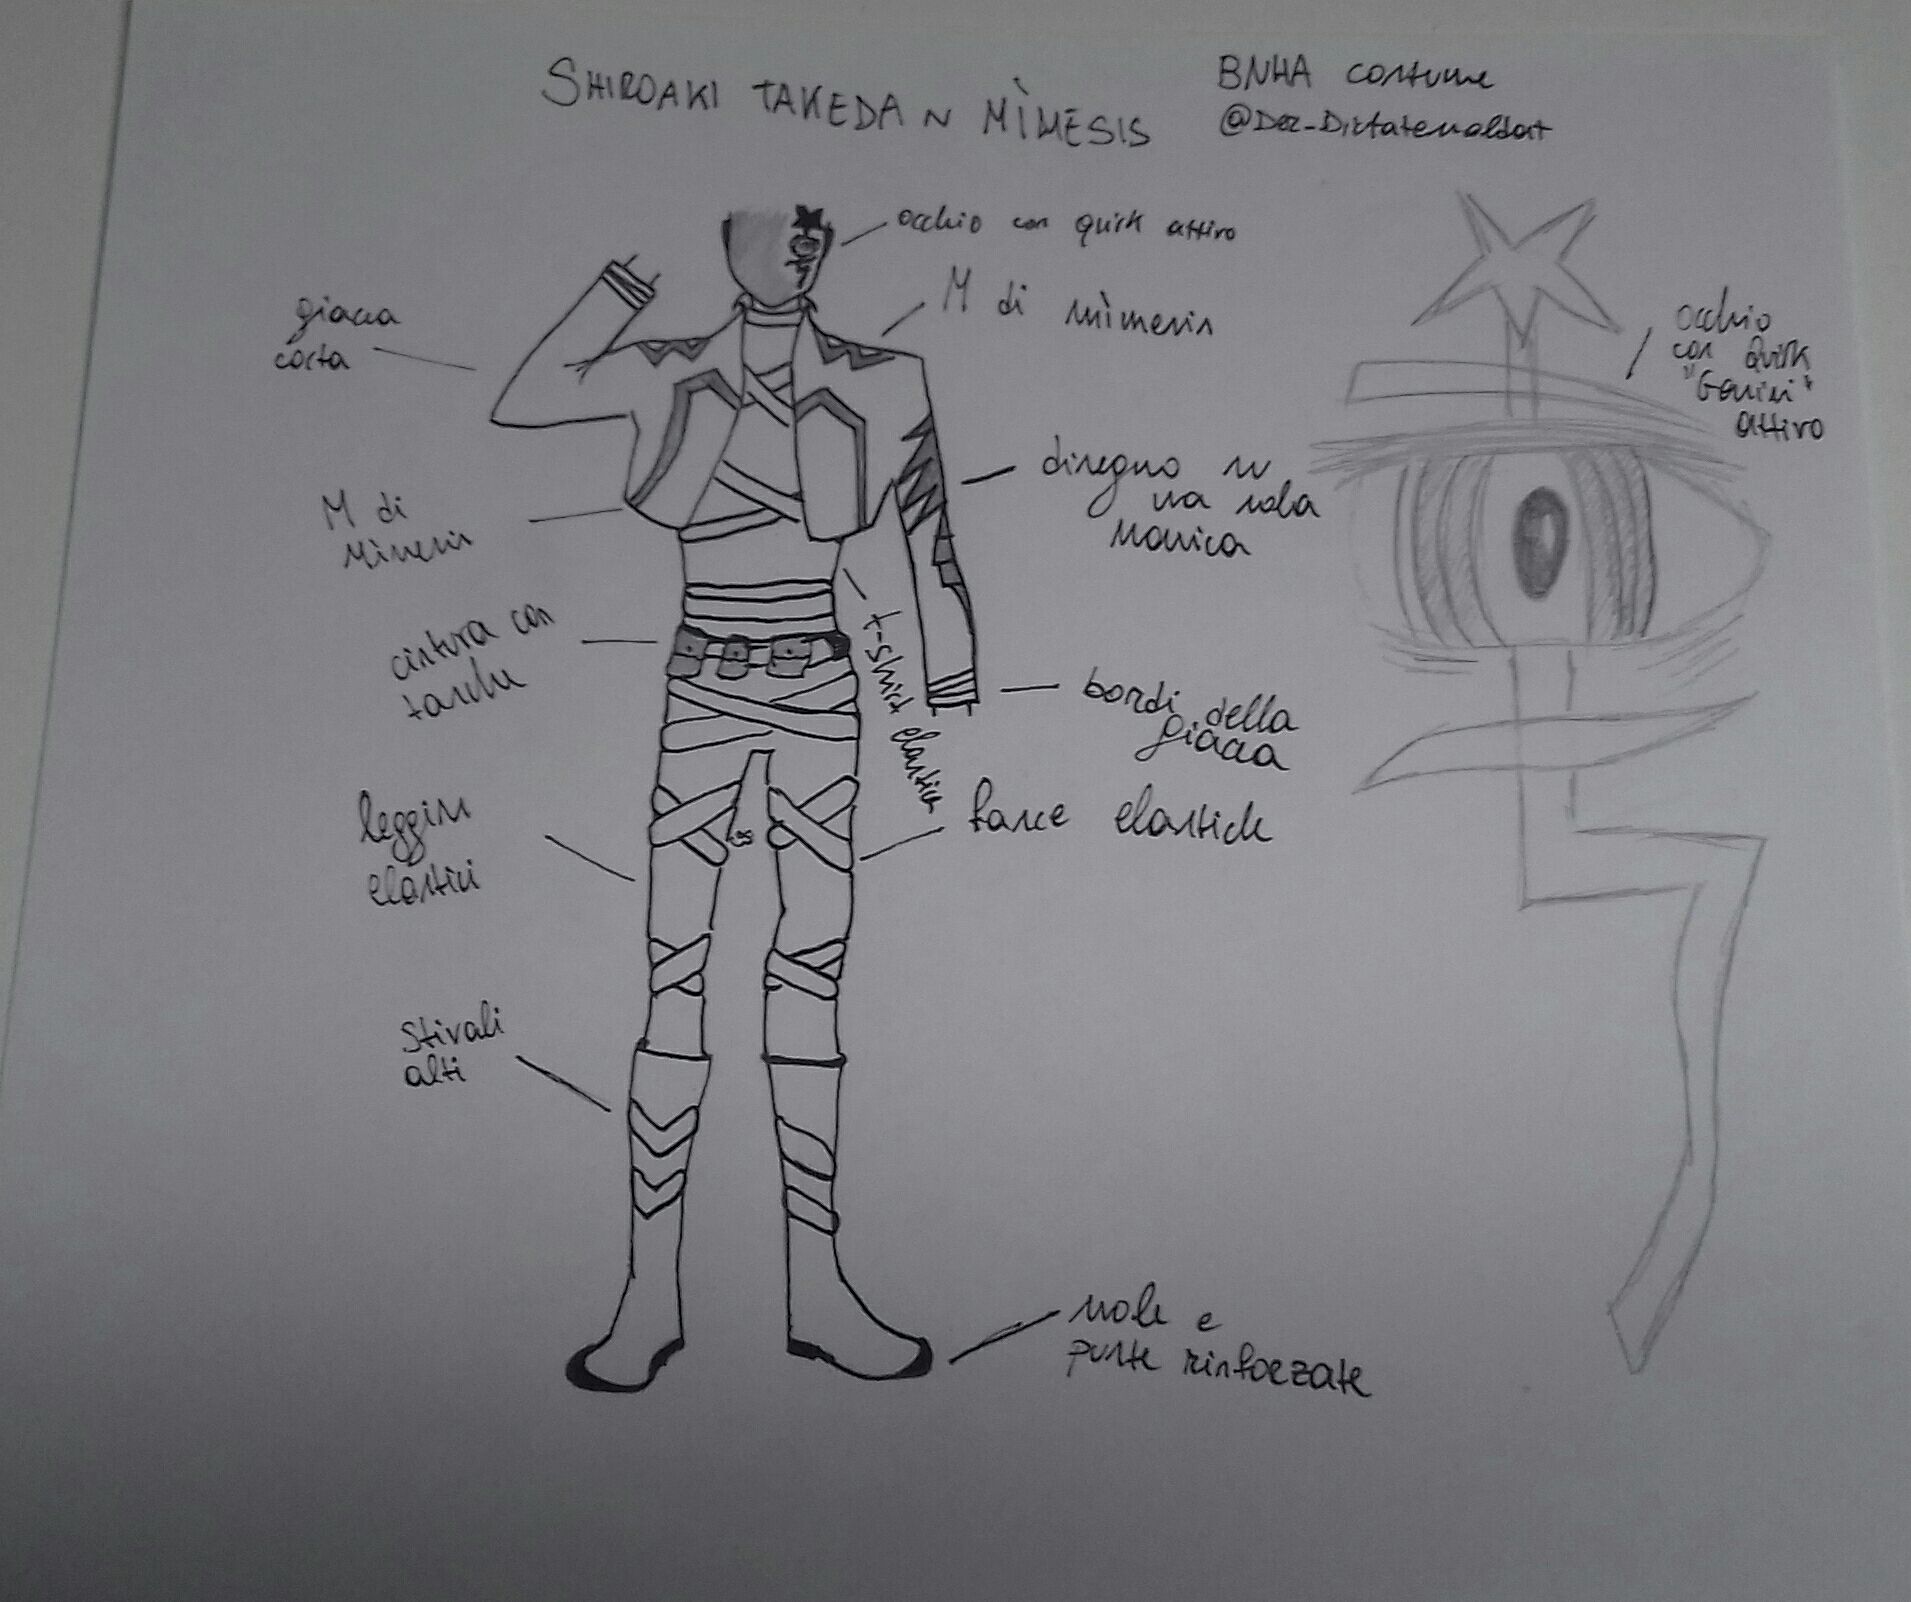 SHIROAKI TAKEDA ~ MÌMESIS
BNHA costume
occhio con quirk attivo
M di mimesis
giacca
corta
occhio
con Quirk
"Gemini"
attivo
disegno su
una sola
manica
M di
Mimesis
cintura con
tasche
t-shirt elastica
bordi della
giacca
leggins
elastici
fasce elastiche
Stivali
alti
suole e
punte rinforzate